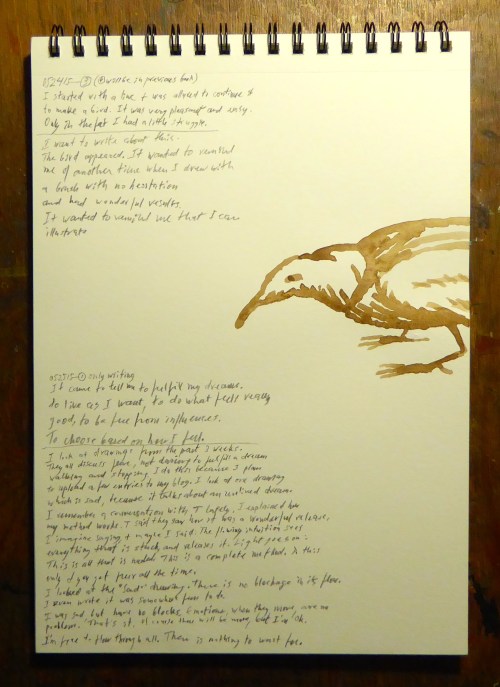 052415—③ (① were in previous book)
I started with a line + was allowed to continue it
to make a bird. It was very pleasant and easy.
Only in the feet I had a little struggle.
I want to write about this.
The bird appeared. It wanted to remind
me of another time when I drew with
a brush with no hesitation
and had wonderful results.
It wanted to remind me that I can
illustrate
052515—① only writing
It came to tell me to fulfill my dreams.
to live as I want, to do what feels really
good, to be free from influences.
To choose based on how I feel.
I look at drawings from the past 2 weeks.
They all discuss fear, not daring to fulfill a dream
walking and stopping. I do this because I plan
to upload a few entries to my blog. I look at one drawing
which is sad, because it talks about an unlived dream
I remember a conversation with T lately. I explained how
my method works. T said they saw how it was a wonderful release,
I imagine saying + maybe I said. The flowing intuition sees
everything that is stuck and releases it. Light pours in.
This is all that is needed. This is a complete method. In this
only I get freer all the time.
I looked at the "sad" drawing. There is no blockage in its flow.
I even write it was somewhat
I was sad but have no blocks. Emotions, when they move, are no
problem. That's it. Of course there will be more, but I'm ok.
I'm free to flow through all. There is nothing to wait for.